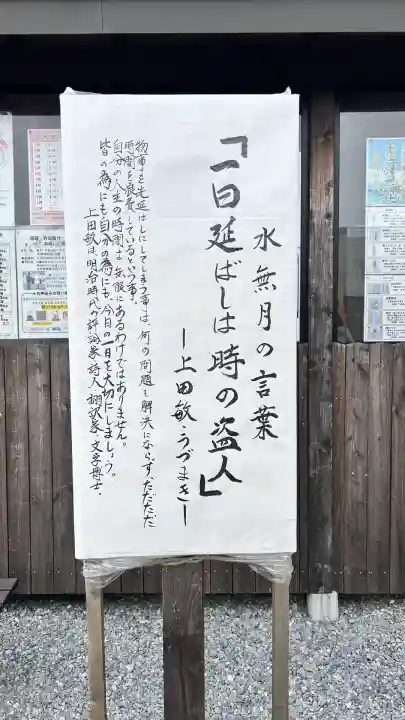 水無月の言葉
「一日延ばしは時の盗人」
ー上田敏・うづまきー
物事を先延ばしにしてしまう事は、何の問題も解決にならず、ただただ
時間を浪費しているという事。
自分の人生の時間は、無限にあるわけではありません。
皆の為にも自分の為にも、今日の一日を大切にしましょう。
上田敏は明治時代の評論家、詩人、翻訳家、文学博士。